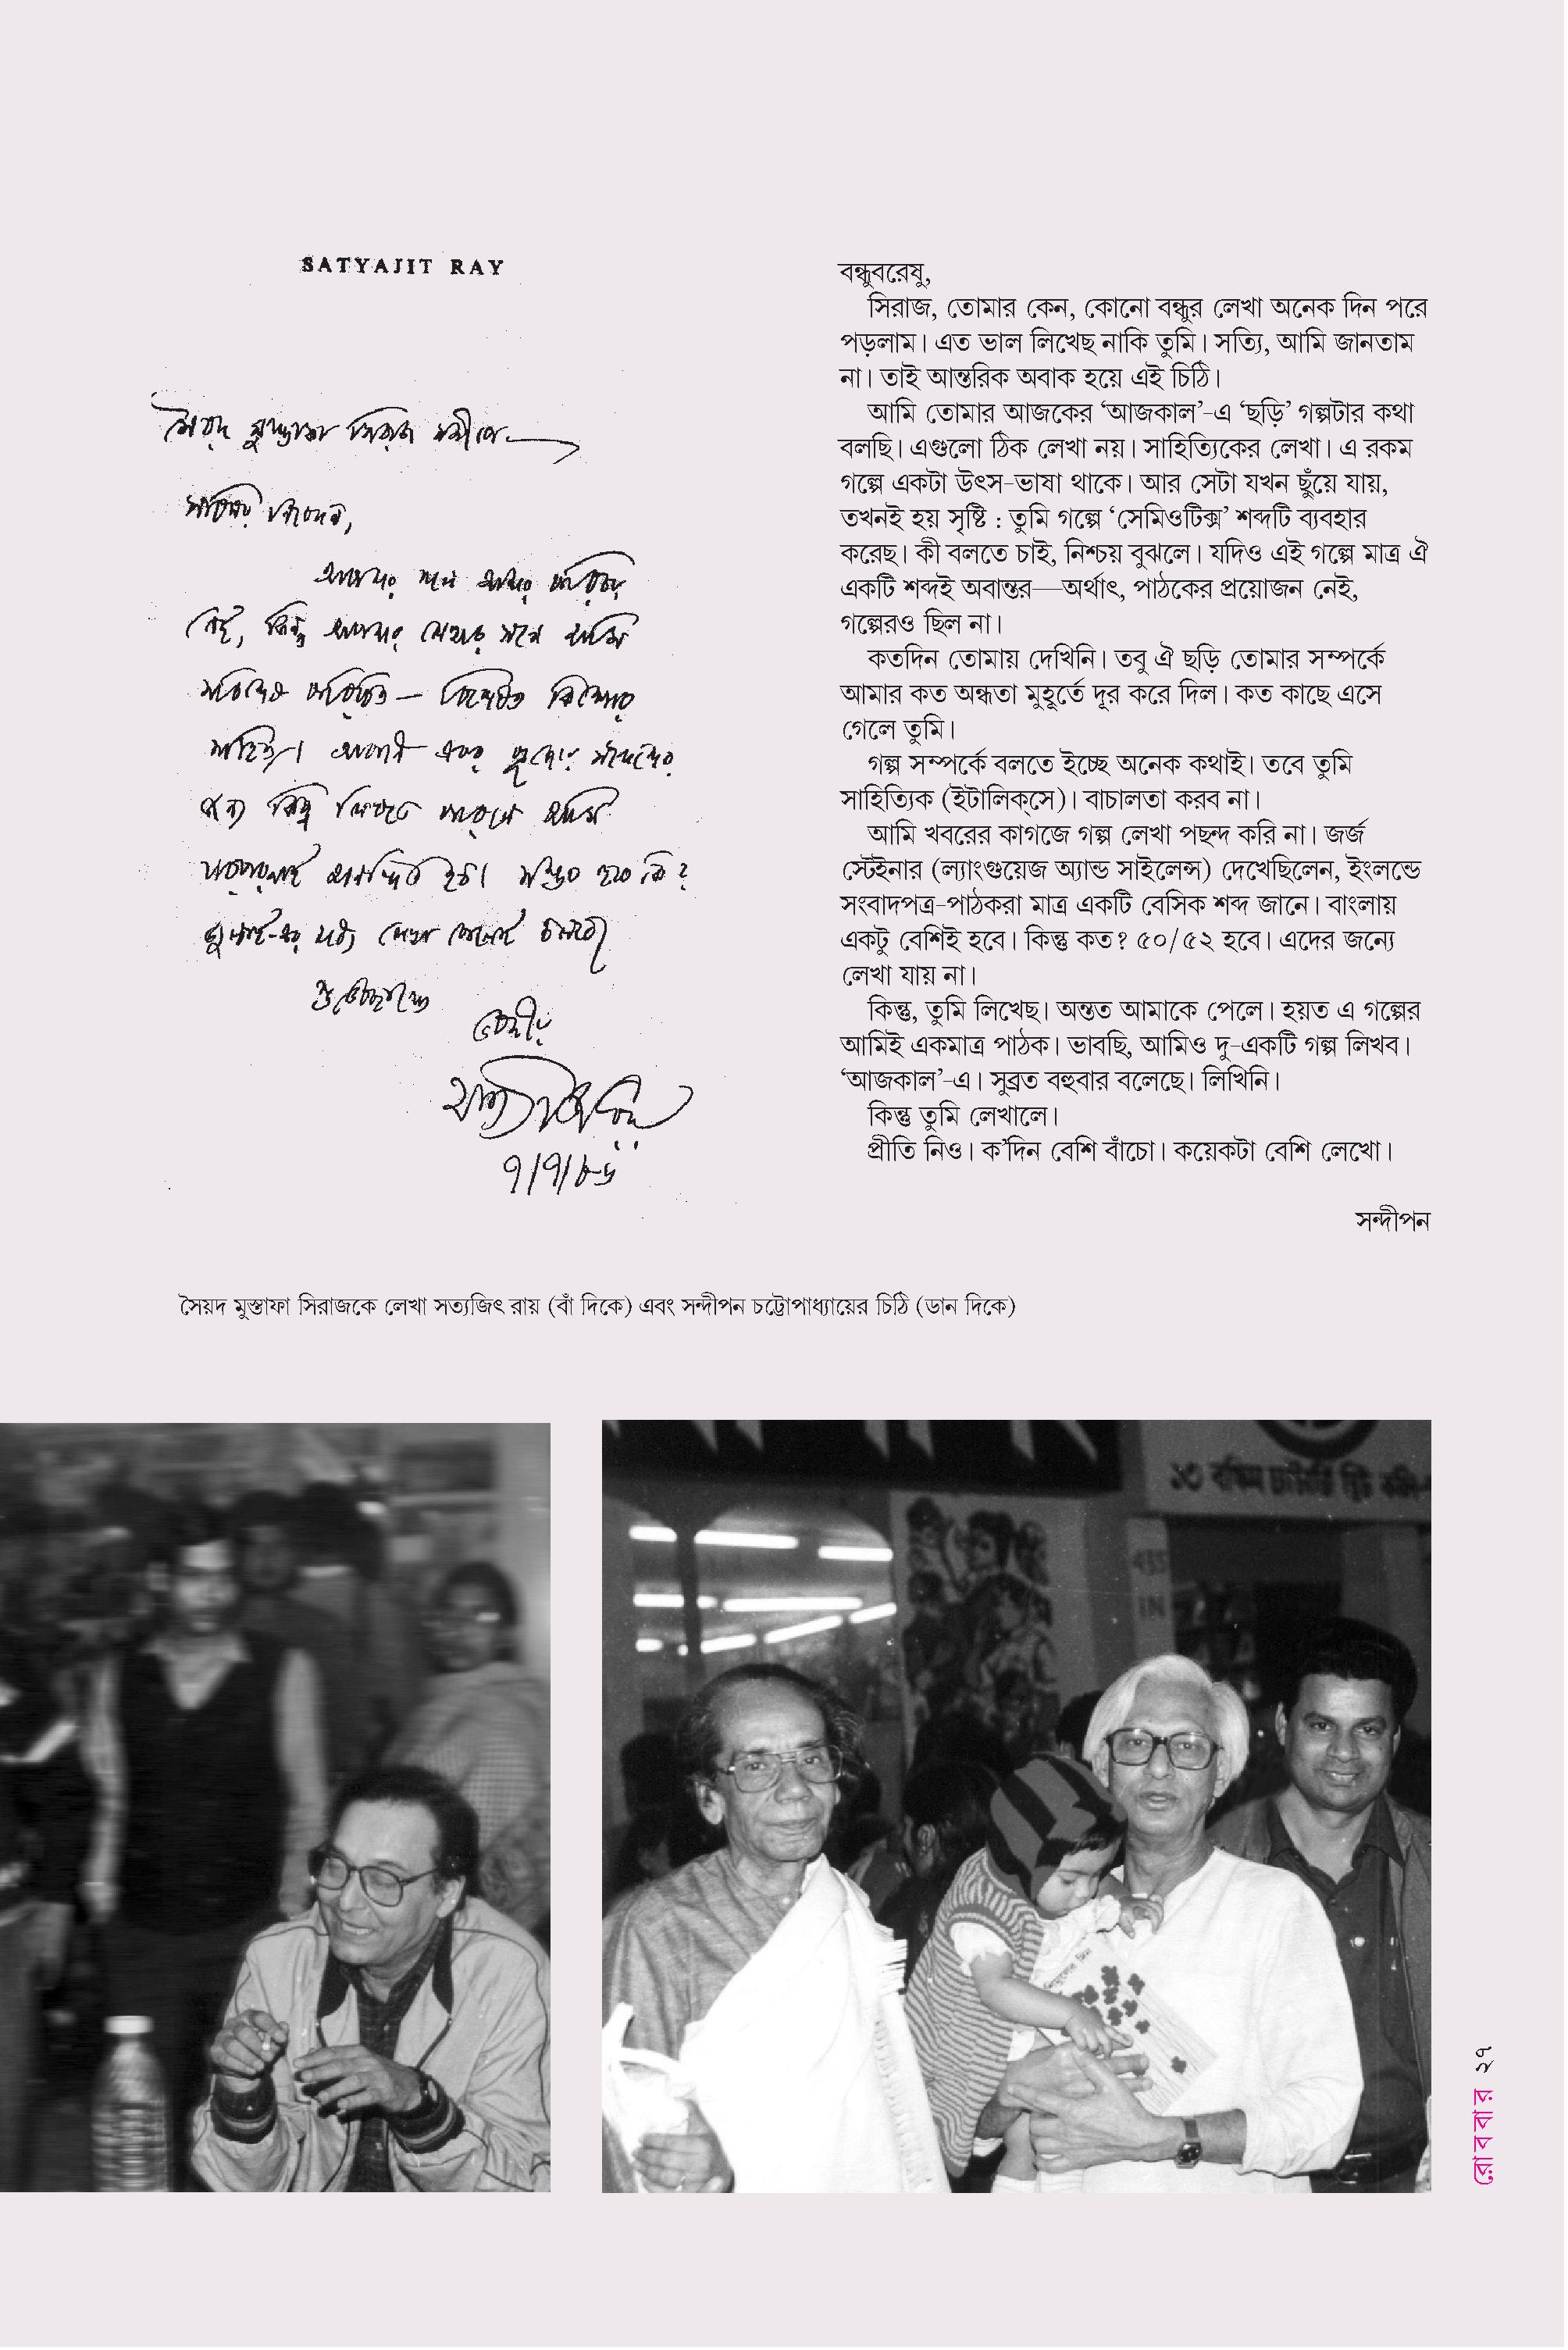 SATYAJIT RAY
সৈয়দ মুস্তাফা সিরাজ সমীপে
সবিনয় নিবেদন,
আপনার সঙ্গে আমার পরিচয়
নেই, কিন্তু আপনার লেখার সঙ্গে আমি
সবিশেষ পরিচিত — বিশেষত কিশোর
সাহিত্য। আপনি এবার পুজোর সন্দেশের
জন্য কিছু লিখতে পারলে আমি
যারপরনাই আনন্দিত হব। সম্ভব হবে কি?
জুলাই-এর মধ্যে লেখা পেলেই চলবে।
শুভেচ্ছান্তে
ভবদীয়
সত্যজিৎ রায়
৭/৭/৮৬
বন্ধুবরেষু,
সিরাজ, তোমার কেন, কোনো বন্ধুর লেখা অনেক দিন পরে
পড়লাম। এত ভাল লিখেছ নাকি তুমি। সত্যি, আমি জানতাম
না। তাই আন্তরিক অবাক হয়ে এই চিঠি।
আমি তোমার আজকের ‘আজকাল’-এ ‘ছড়ি’ গল্পটার কথা
বলছি। এগুলো ঠিক লেখা নয়। সাহিত্যিকের লেখা। এ রকম
গল্পে একটা উৎস-ভাষা থাকে। আর সেটা যখন ছুঁয়ে যায়,
তখনই হয় সৃষ্টি : তুমি গল্পে ‘সেমিওটিক্স’ শব্দটি ব্যবহার
করেছ। কী বলতে চাই, নিশ্চয় বুঝলে। যদিও এই গল্পে মাত্র ঐ
একটি শব্দই অবান্তর—অর্থাৎ, পাঠকের প্রয়োজন নেই,
গল্পেরও ছিল না।
কতদিন তোমায় দেখিনি। তবু ঐ ছড়ি তোমার সম্পর্কে
আমার কত অন্ধতা মুহূর্তে দূর করে দিল। কত কাছে এসে
গেলে তুমি।
গল্প সম্পর্কে বলতে ইচ্ছে অনেক কথাই। তবে তুমি
সাহিত্যিক (ইটালিক্‌সে)। বাচালতা করব না।
আমি খবরের কাগজে গল্প লেখা পছন্দ করি না। জর্জ
স্টেইনার (ল্যাংগুয়েজ অ্যান্ড সাইলেন্স) দেখেছিলেন, ইংলন্ডে
সংবাদপত্র-পাঠকরা মাত্র একটি বেসিক শব্দ জানে। বাংলায়
একটু বেশিই হবে। কিন্তু কত? ৫০/৫২ হবে। এদের জন্যে
লেখা যায় না।
কিন্তু, তুমি লিখেছ। অন্তত আমাকে পেলে। হয়ত এ গল্পের
আমিই একমাত্র পাঠক। ভাবছি, আমিও দু-একটি গল্প লিখব।
‘আজকাল’-এ। সুব্রত বহুবার বলেছে। লিখিনি।
কিন্তু তুমি লেখালে।
প্রীতি নিও। ক’দিন বেশি বাঁচো। কয়েকটা বেশি লেখো।
সন্দীপন
সৈয়দ মুস্তাফা সিরাজকে লেখা সত্যজিৎ রায় (বাঁ দিকে) এবং সন্দীপন চট্টোপাধ্যায়ের চিঠি (ডান দিকে)
১৩ বঙ্কিম চ্যাটার্জি স্ট্রিট
IN
রোববার ২৭